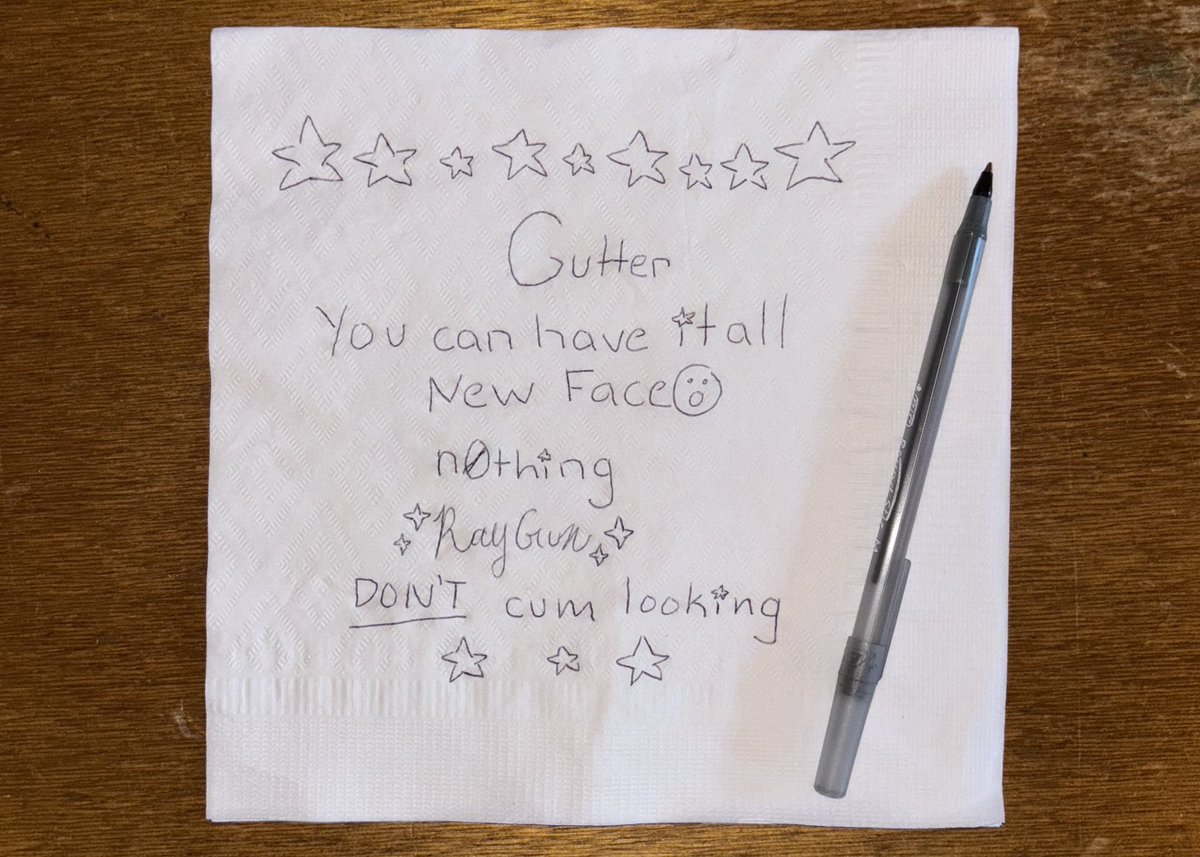 Gutter
You can have it all
New Face
nøthing
RayGun
DON'T cum looking